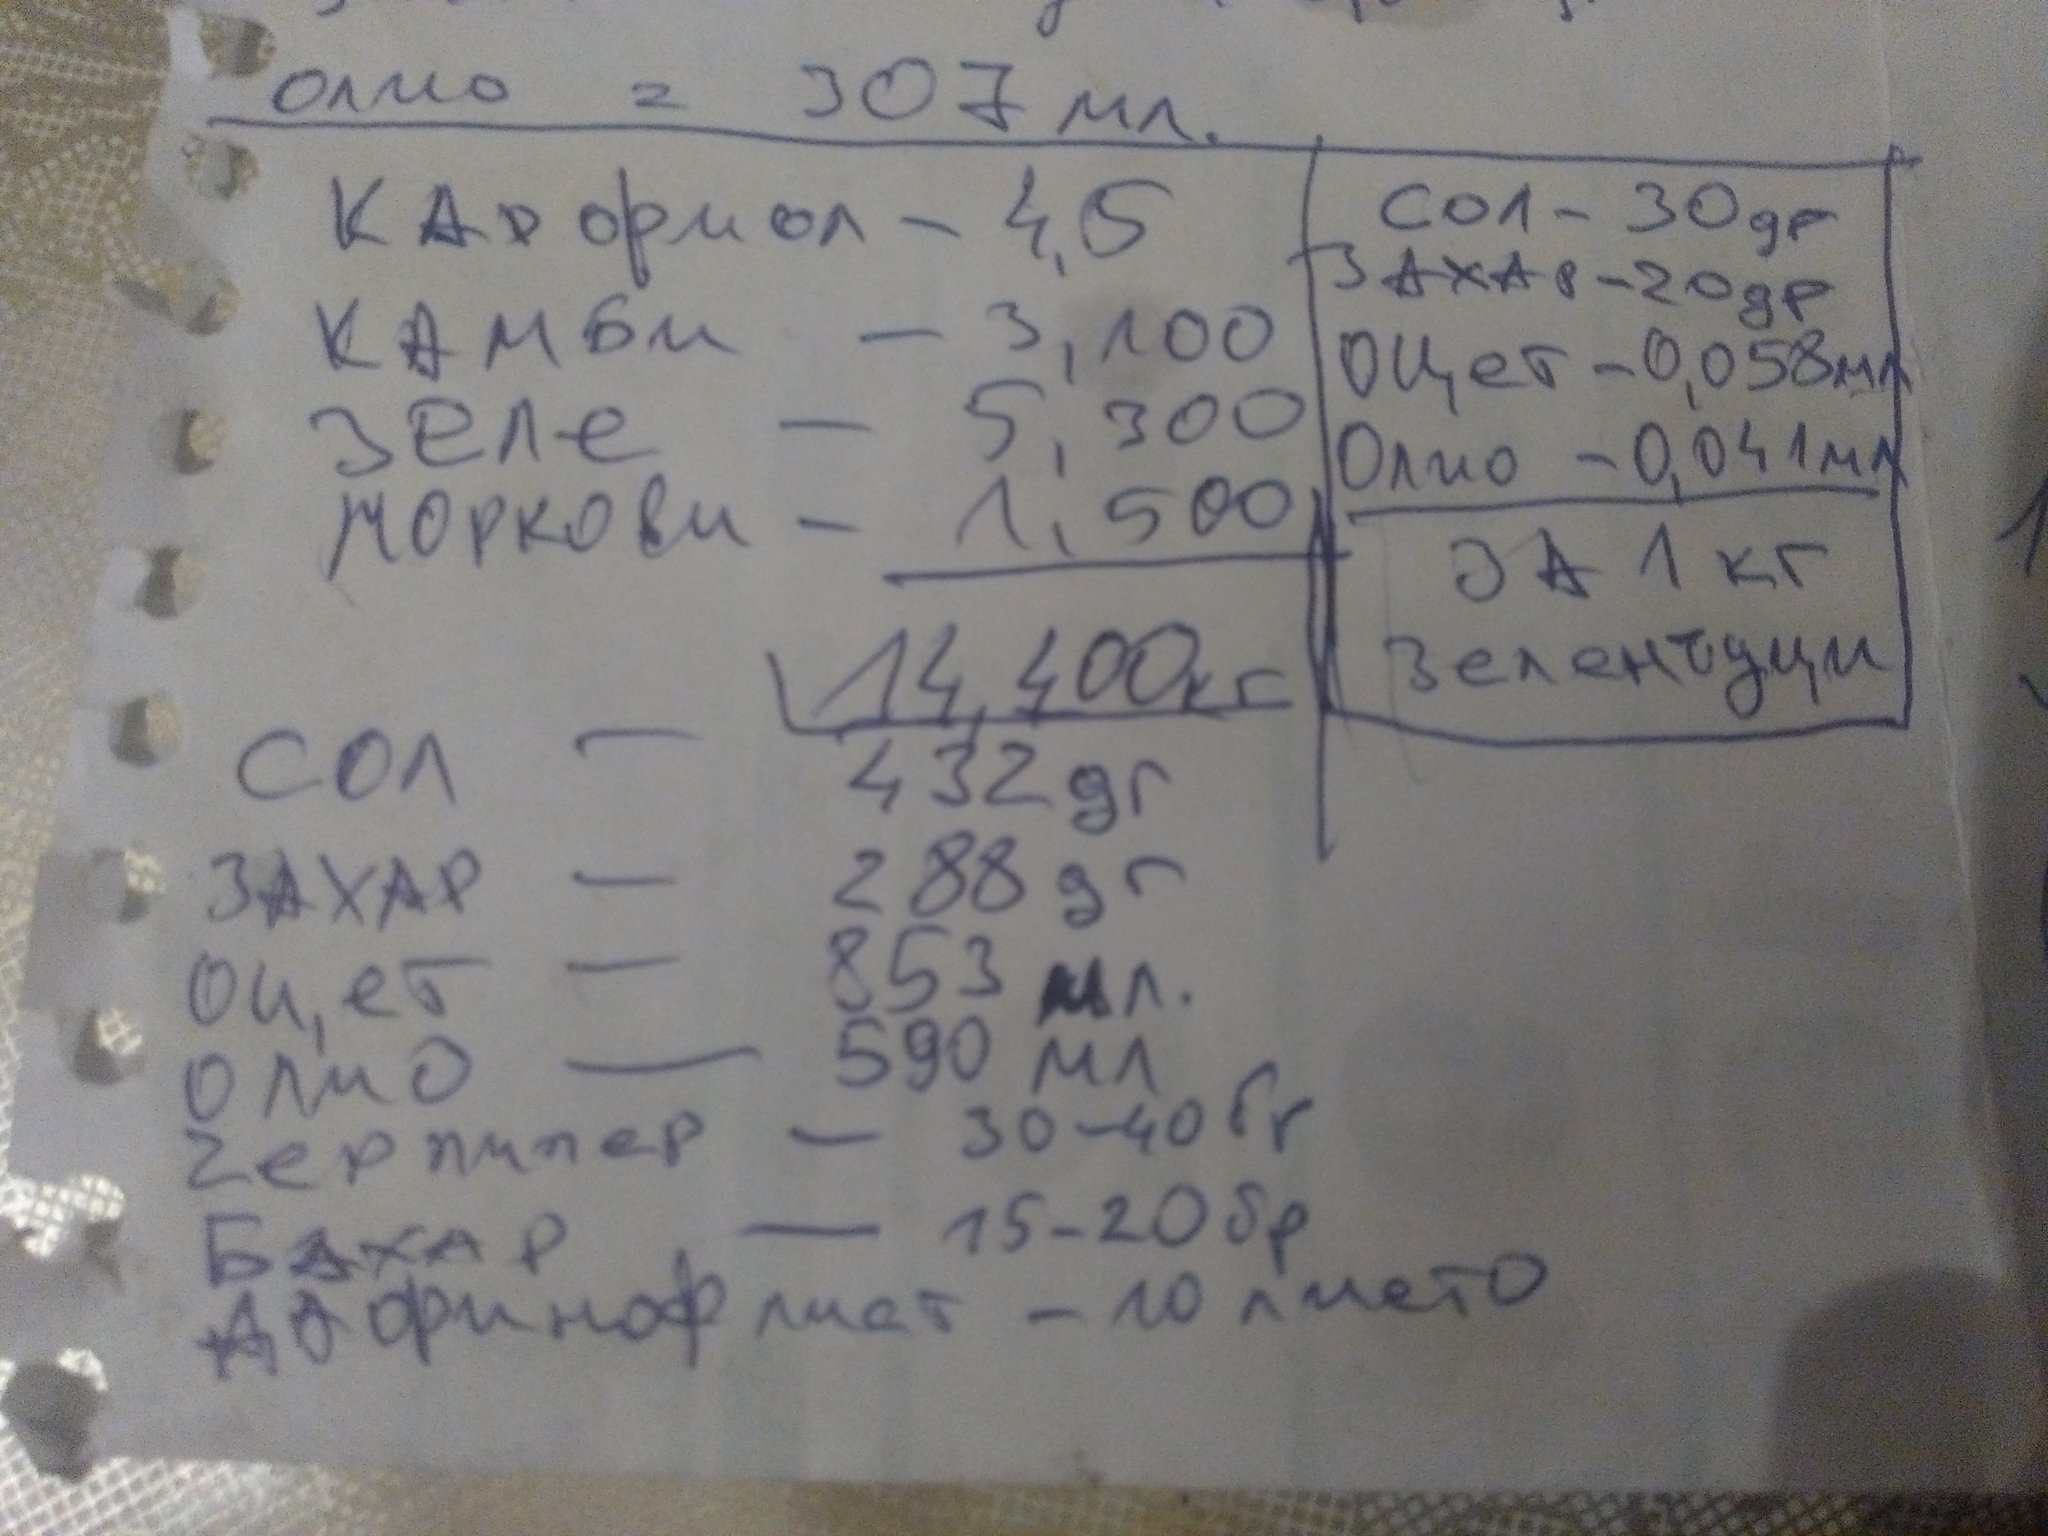 олио = 307 мл.
Карфиол - 4,5
Камби - 3,100
Зеле - 5,300
Моркови - 1,500
14,400 кг
Сол - 30 gр
Захар - 20 gр
Оцет - 0,058 мл
Олио - 0,041 мл
За 1 кг
зеленчуци
Сол - 432 gr
Захар - 288 gr
Оцет - 853 мл.
Олио - 590 мл
Чер пипер - 30-40 бр
Бахар - 15-20 бр
Дафинов лист - 10 листо